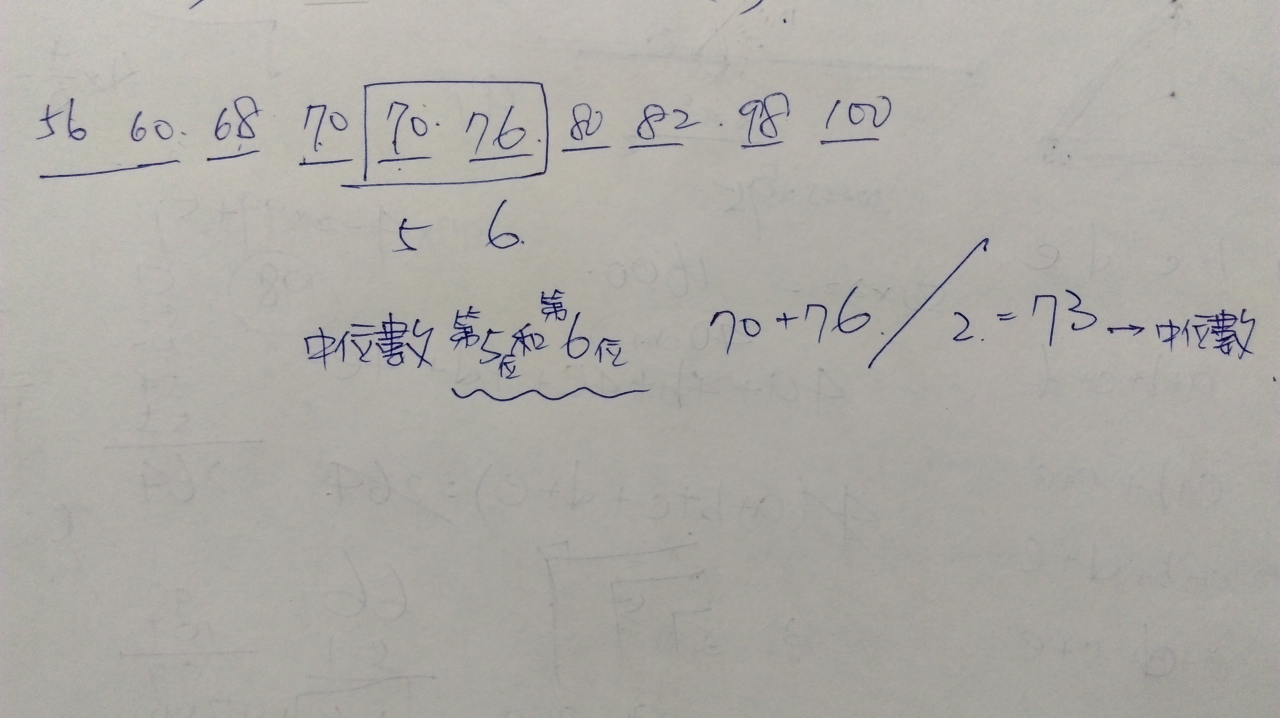 56 60. 68 70 70. 76. 80 82. 98 100
5 6.
中位數 第5位和第6位 70+76 / 2. = 73 → 中位數